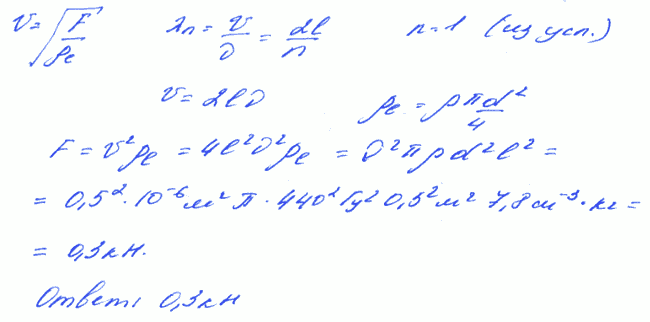 v = √(F/ρe)   λn = v/ν = 2l/n   n = 1 (из усл.)
v = 2lν   ρe = ρ πd²/4
F = v²ρe = 4l²ν²ρe = ν²πρd²l² =
= 0,5² · 10⁻⁶ м² π · 440² Гц² 0,5² м² 7,8 см⁻³ · кг =
= 0,3 кН.
Ответ: 0,3 кН